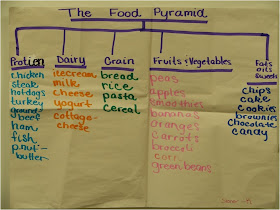 The Food Pyramid
Protien
chicken
steak
hotdogs
turkey
ground
beef
ham
fish
p.nut-
butter
Dairy
icecream
milk
cheese
yogurt
cottage-
cheese
Grain
bread
rice
pasta
cereal
Fruits & Vegetables
peas
apples
smoothies
bananas
Oranges
Carrots
broccoli
corn
green beans
Fats
oils
sweets
chips
cake
cookies
brownies
chocolate
candy